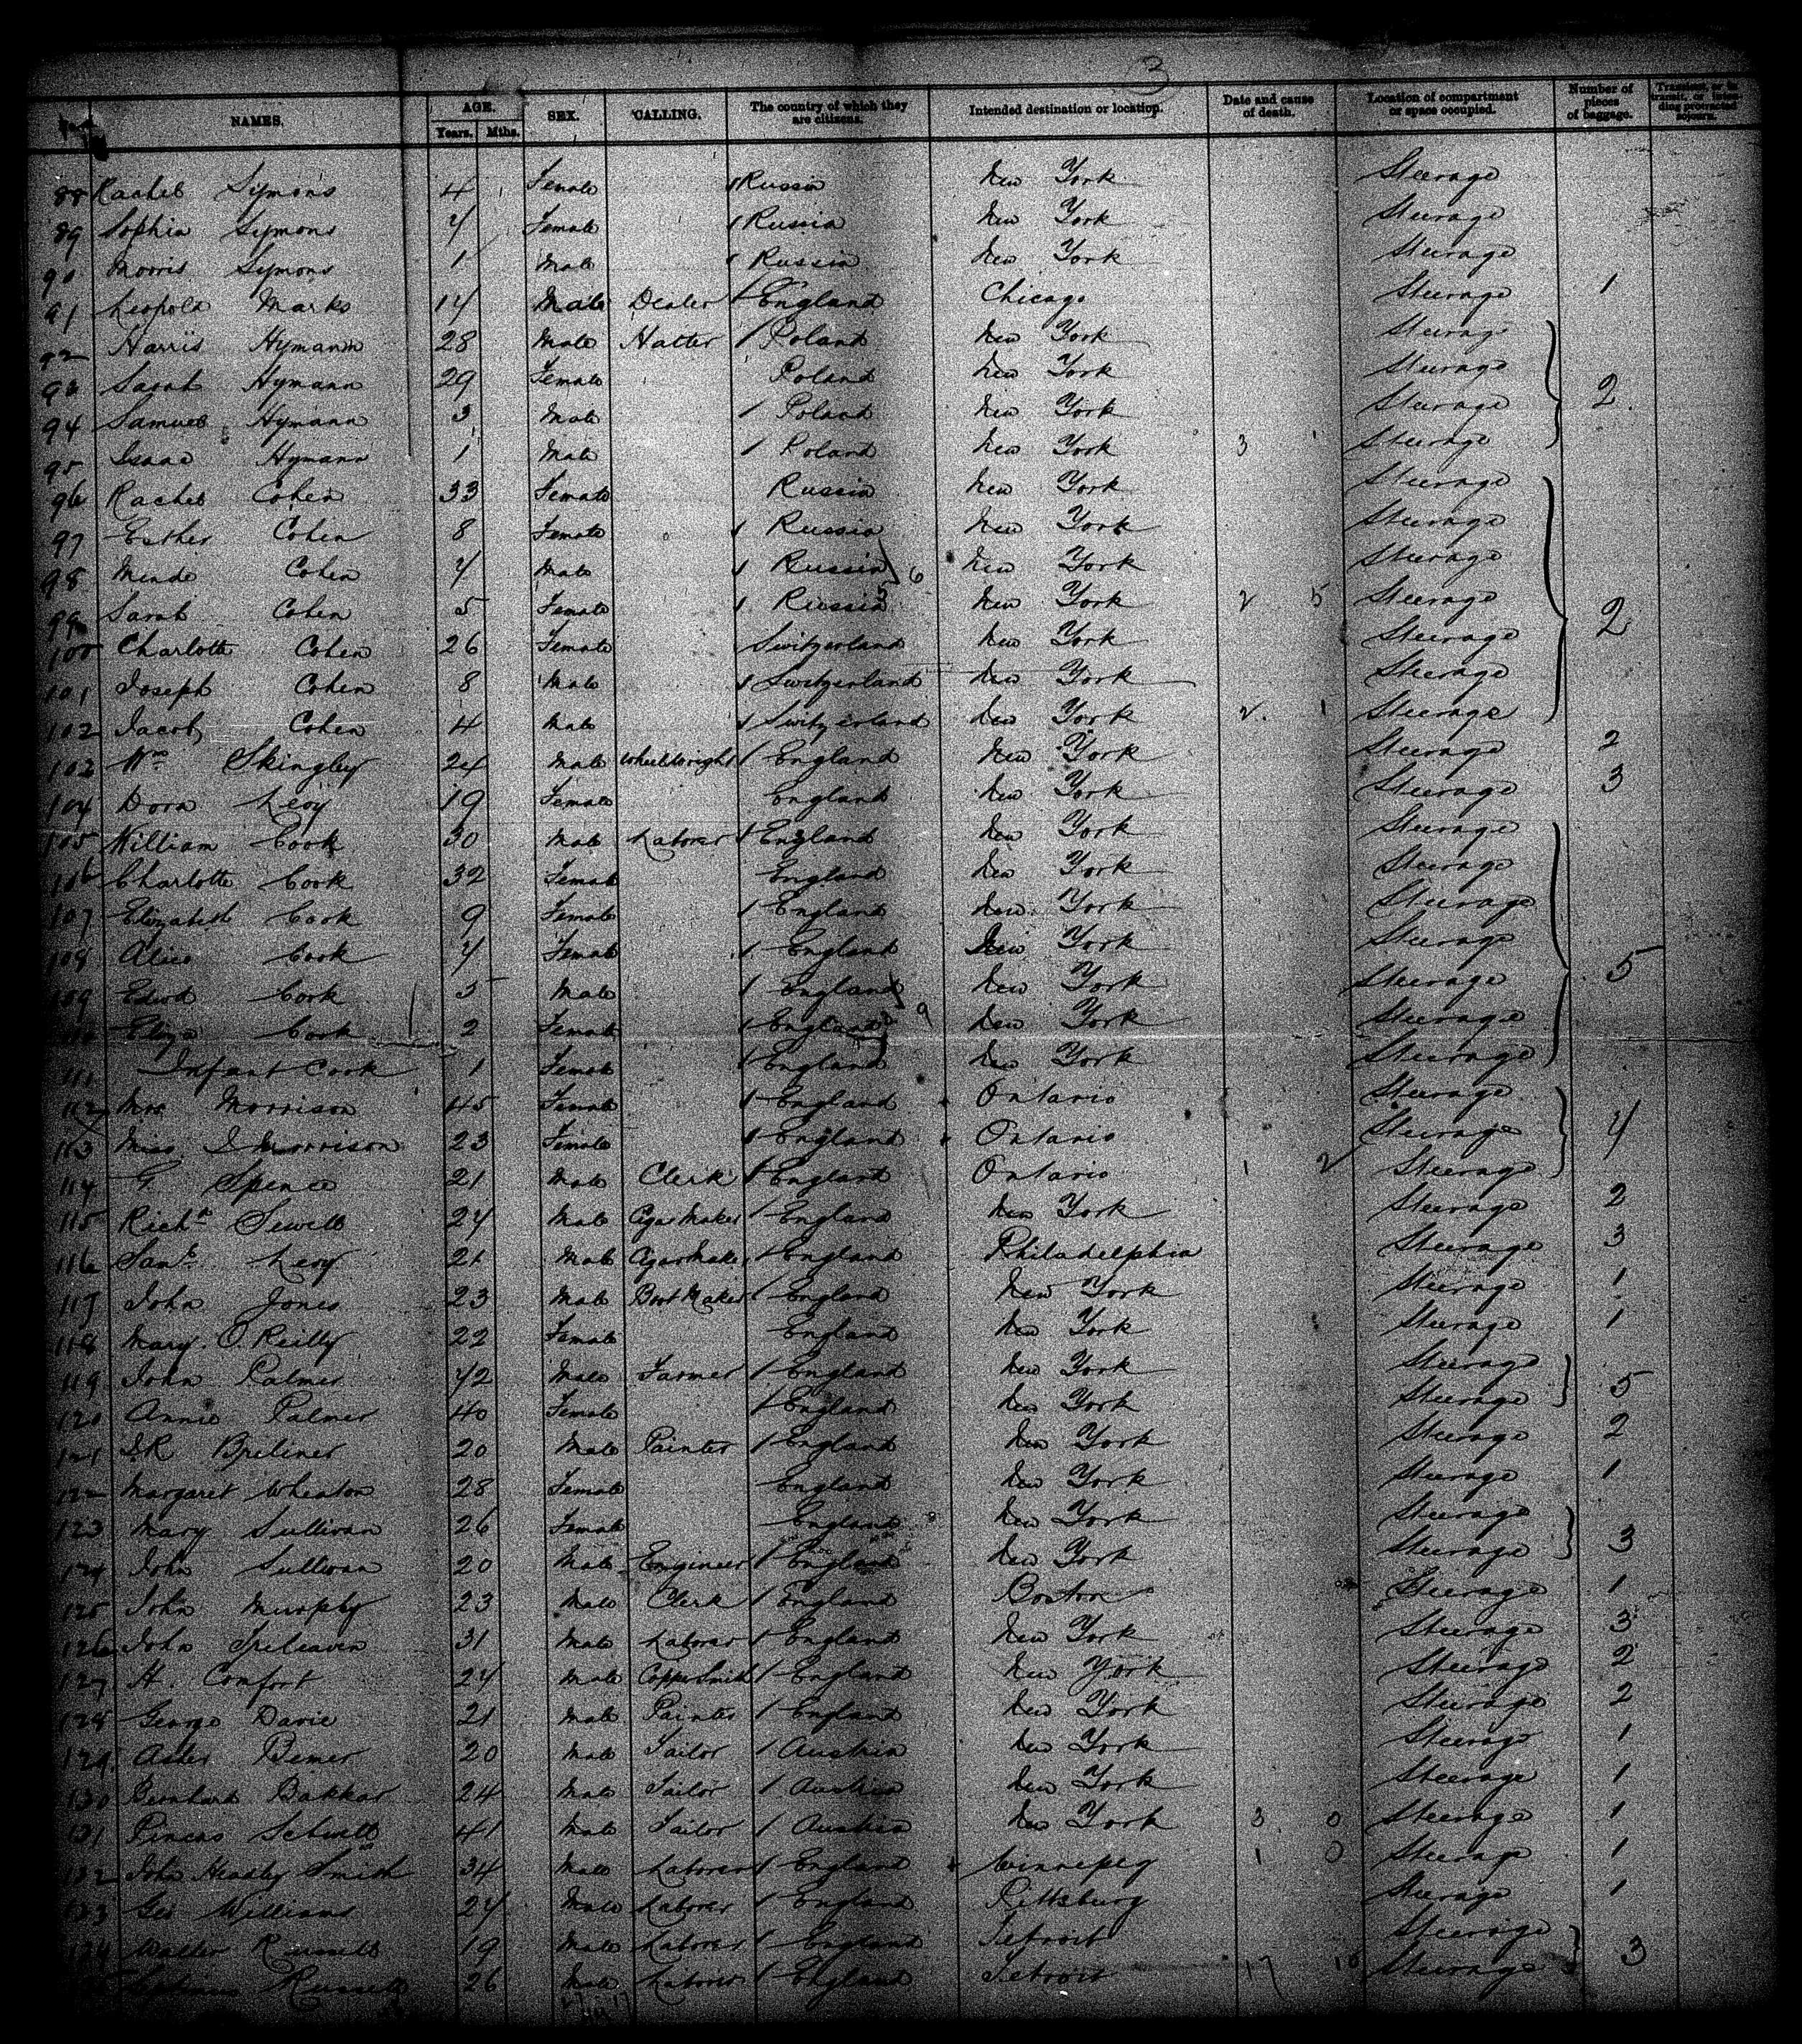 3
NAMES. AGE. Years. Mths. SEX. CALLING. The country of which they are citizens. Intended destination or location. Date and cause of death. Location of compartment or space occupied. Number of pieces of baggage.
88 Rachel Symons 4 Female Russia New York Steerage
89 Sophia Symons Female Russia New York Steerage
90 Morris Symons 1 Male Russia New York Steerage
91 Leopold Marks Male Dealer England Chicago Steerage 1
92 Harris Hymann 28 Male Hatter Poland New York Steerage
93 Sarah Hymann 29 Female Poland New York Steerage 2
94 Samuel Hymann 3 Male Poland New York Steerage
95 Isaac Hymann 1 Male Poland New York 3 1 Steerage
96 Rachel Cohen 33 Female Russia New York Steerage
97 Esther Cohen 8 Female Russia New York Steerage
98 Cohen Male Russia 6 New York Steerage
99 Sarah Cohen 5 Female Russia New York 2 5 Steerage 2
100 Charlotte Cohen 26 Female Switzerland New York Steerage
101 Joseph Cohen 8 Male Switzerland New York Steerage
102 Jacob Cohen 4 Male Switzerland New York 2 1 Steerage
103 Wm Skingley 24 Male Wheelwright England New York Steerage 2
104 Dora Levy 19 Female England New York Steerage 3
105 William Cook 30 Male Laborer England New York Steerage
106 Charlotte Cook 32 Female England New York Steerage
107 Elizabeth Cook 9 Female England New York Steerage
108 Alice Cook Female England New York Steerage
109 Edwd Cook 5 Male England New York Steerage 5
110 Eliza Cook 2 Female England 9 New York Steerage
111 Infant Cook 1 Female England New York Steerage
112 Mrs Morrison 45 Female England Ontario Steerage
113 Miss Morrison 23 Female England Ontario Steerage
114 G. Spence 21 Male Clerk England Ontario 1 2 Steerage
115 Richd Sewell Male Cigar Maker England New York Steerage 2
116 Saml Levy 21 Male Cigar Maker England Philadelphia Steerage 3
117 John Jones 23 Male Boot Maker England New York Steerage 1
118 Mary O.Reilly 22 Female England New York Steerage 1
119 John Palmer 42 Male Farmer England New York Steerage
120 Annie Palmer 40 Female England New York Steerage 5
121 Breliner 20 Male Painter England New York Steerage 2
122 Margaret Wheaton 28 Female England New York Steerage 1
123 Mary Sullivan 26 Female England New York Steerage
124 John Sullivan 20 Male Engineer England New York Steerage 3
125 John Murphy 23 Male Clerk England Boston Steerage 1
126 John 31 Male Laborer England New York Steerage 3
127 H. Comfort Male Copper Smith England New York Steerage 2
128 George Davie 21 Male Painter England New York Steerage 2
129 Asher Bemer 20 Male Tailor Austria New York Steerage 1
130 Bernhard Bakkar 24 Male Tailor Austria New York Steerage 1
131 Pincas 41 Male Tailor Austria New York 3 0 Steerage 1
132 John Headley Smith 34 Male Laborer England Winnepeg 1 0 Steerage 1
133 Geo Williams Male Laborer England Pittsburg Steerage 1
134 Walter Russell 19 Male Laborer England Detroit Steerage
Russell 26 Male Laborer England Detroit 17 10 Steerage 3